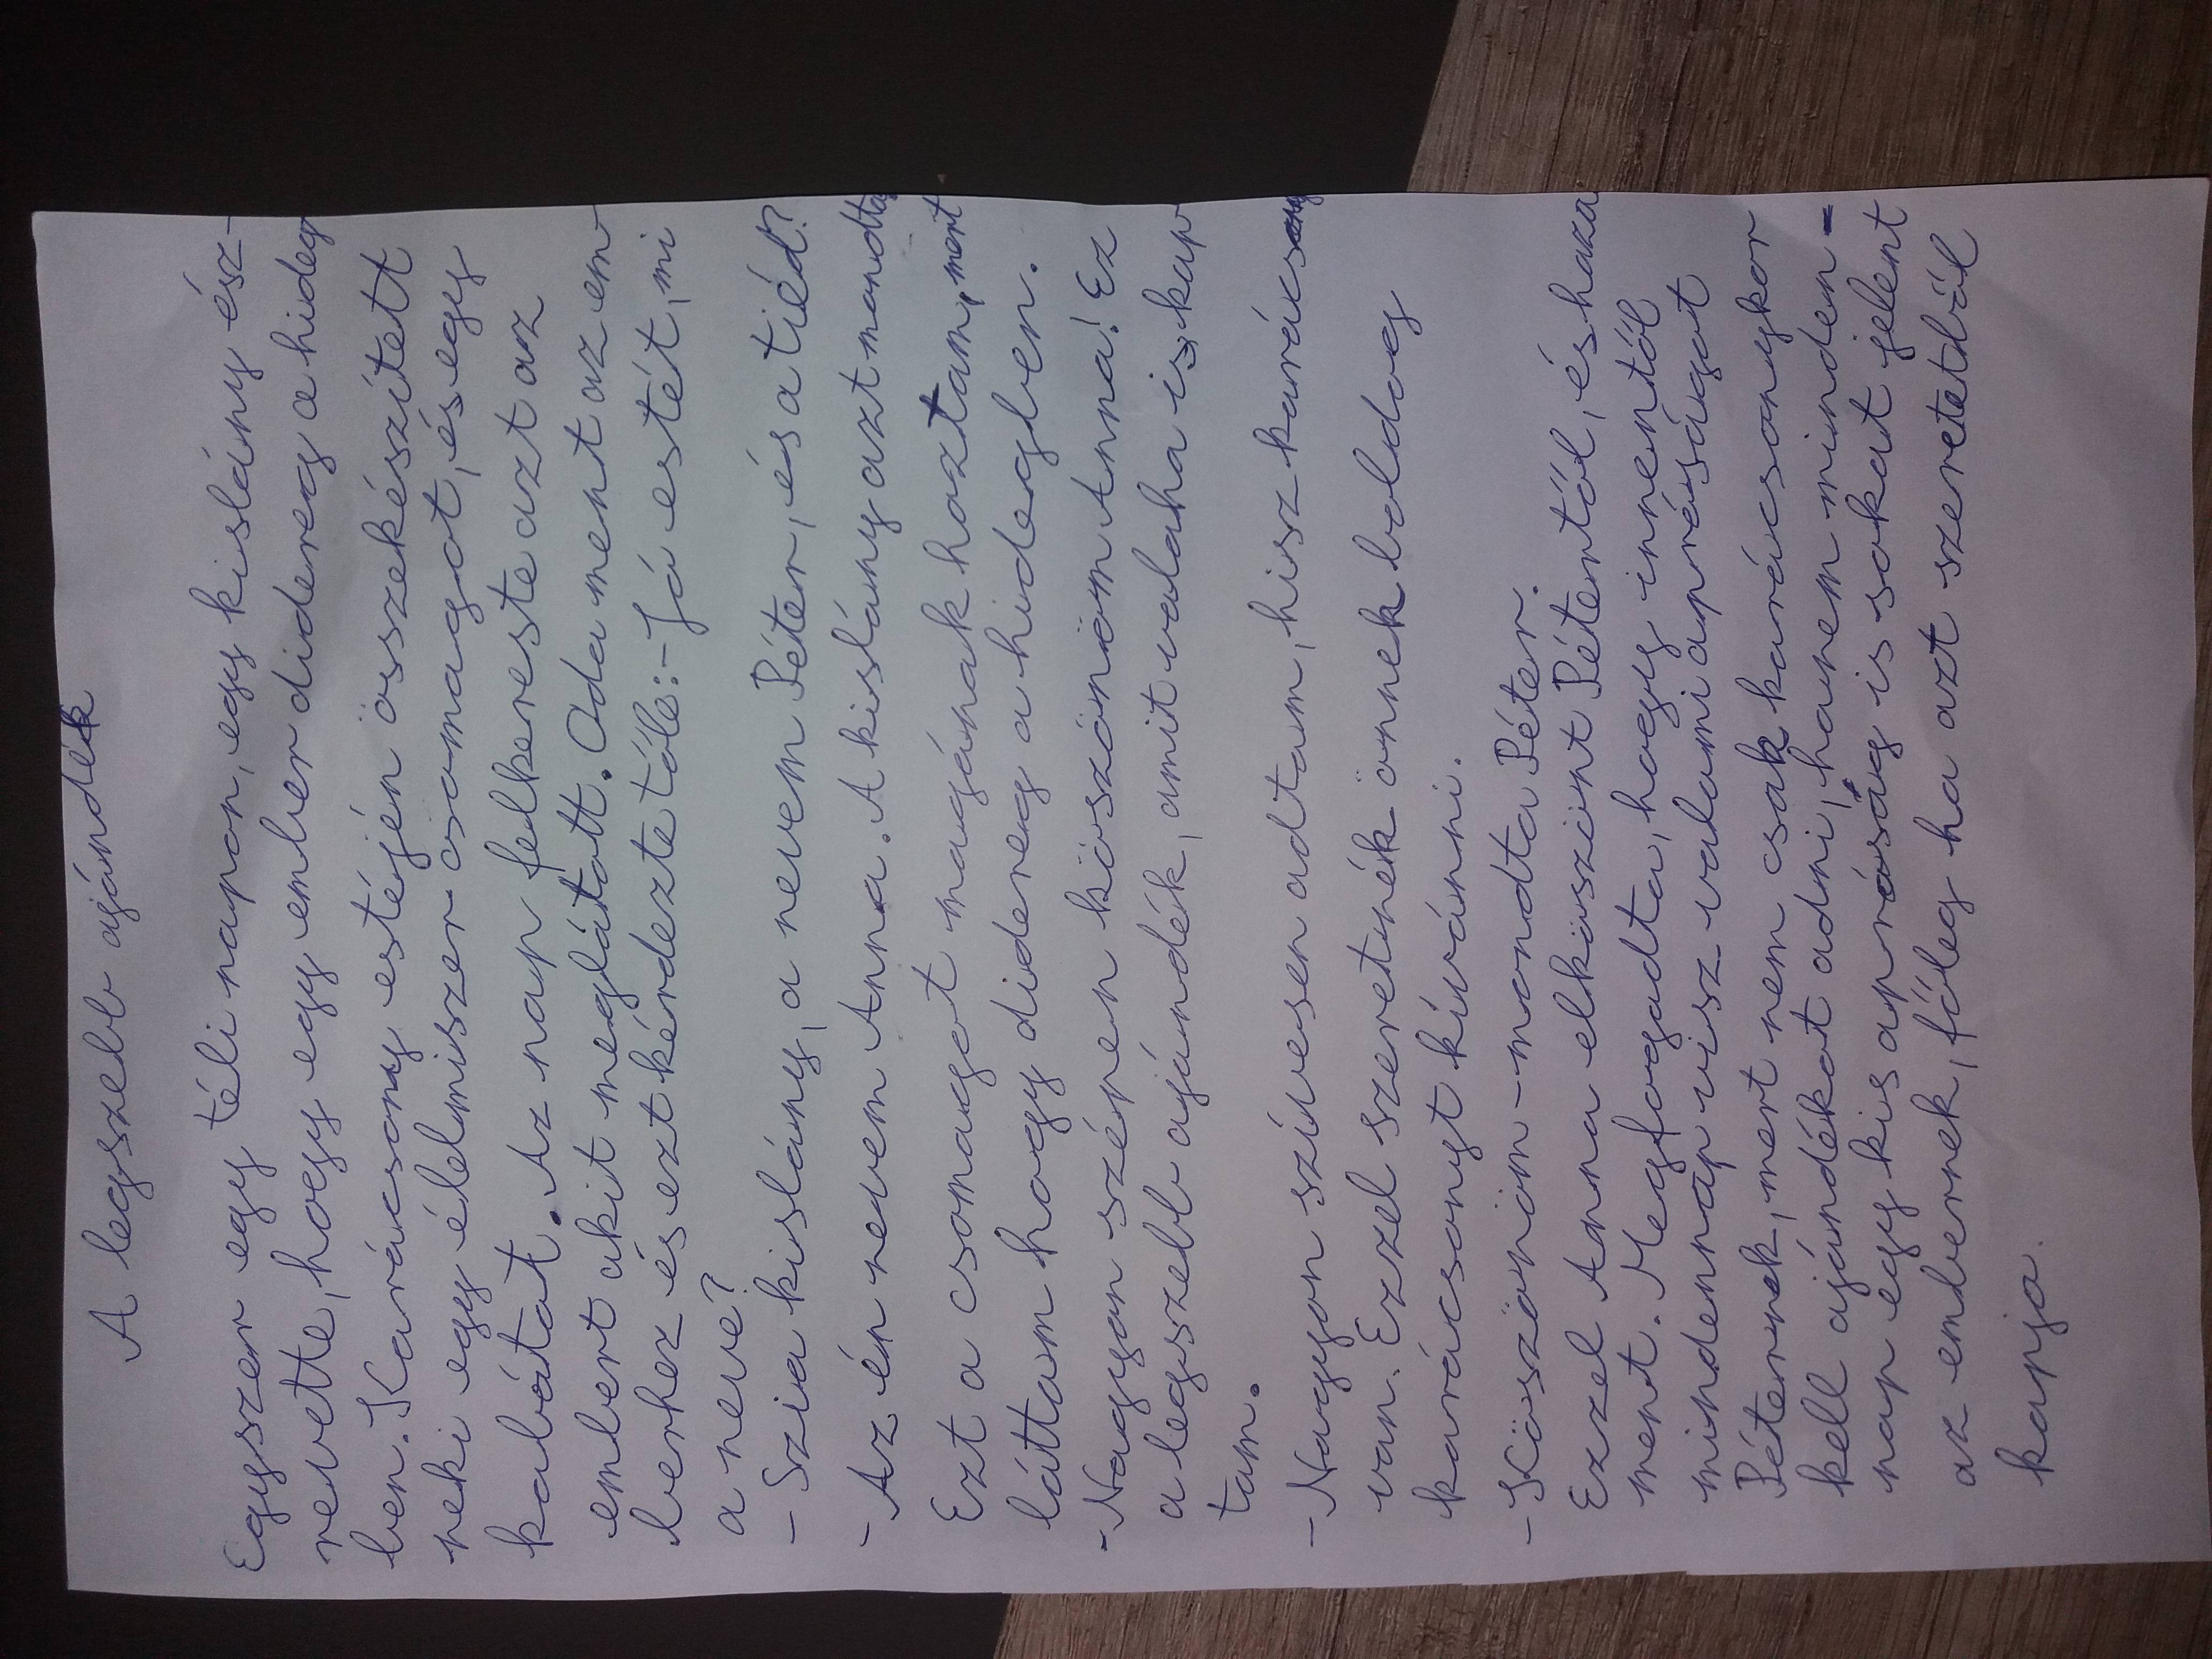 A legszebb ajándék
Egyszer egy téli napon, egy kislány ész-
revette, hogy egy ember didereg a hideg
ben. Karácsony estéjén összekészített
neki egy élelmiszer csomagot, és egy
kabátot. Az nap felkereste azt az
embert akit meglátott. Oda ment az em
berhez és ezt kérdezte tőle:- Jó estét, mi
a neve?
- Szia kislány, a nevem Péter, és a tiéd?
- Az én nevem Anna. A kislány azt mondta
Ezt a csomagot magának hoztam, mert
láttam hogy didereg a hidegben.
- Nagyon szépen köszönöm Anna! Ez
a legszebb ajándék, amit valaha is kap
tam.
- Nagyon szívesen adtam, hisz karácsony
van. Ezzel szeretnék önnek boldog
karácsonyt kívánni.
- Köszönöm - mondta Péter.
Ezzel Anna elköszönt Pétertől, és haza
ment. Megfogadta, hogy innentől
mindennap visz valami apróságot
Péternek, mert nem csak karácsonykor
kell ajándékot adni, hanem minden-
nap egy kis apróság is sokat jelent
az embernek, főleg ha azt szeretetből
kapja.